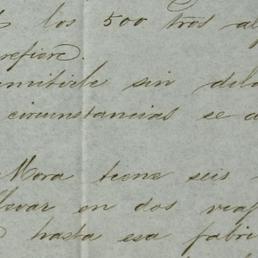 los 500 tros al
refiere.
mitirle sin dila
circunstancias se a
Mora tiene seis
llevar en dos viaj
hasta esa fabri